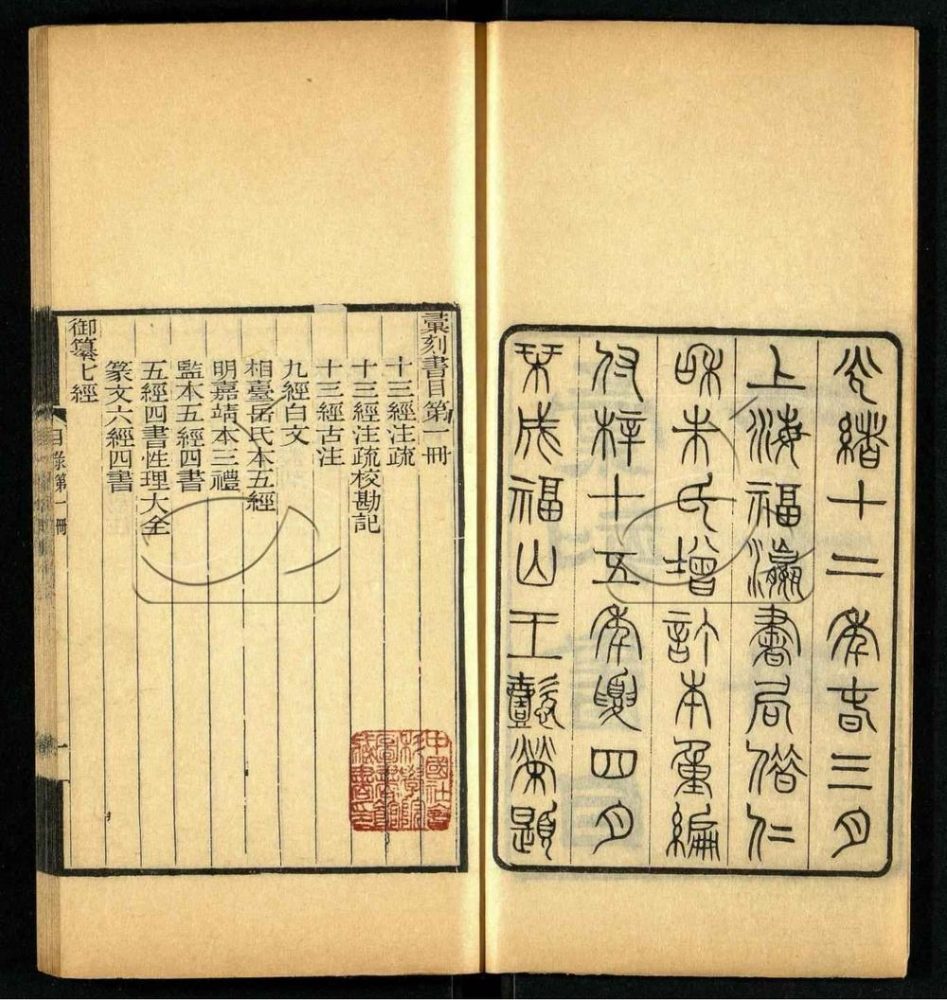 光緒十二年春三月
上海福瀛書局借仁
和朱氏增訂本重編
付梓十五年夏四月
栞成福山王懿榮題
彙刻書目第一冊
十三經注疏
十三經注疏校勘記
十三經古注
九經白文
相臺岳氏本五經
明嘉靖本三禮
監本五經四書
五經四書性理大全
篆文六經四書
御纂七經
目錄第一冊
一
中國社會
科學院
圖書館
藏書印